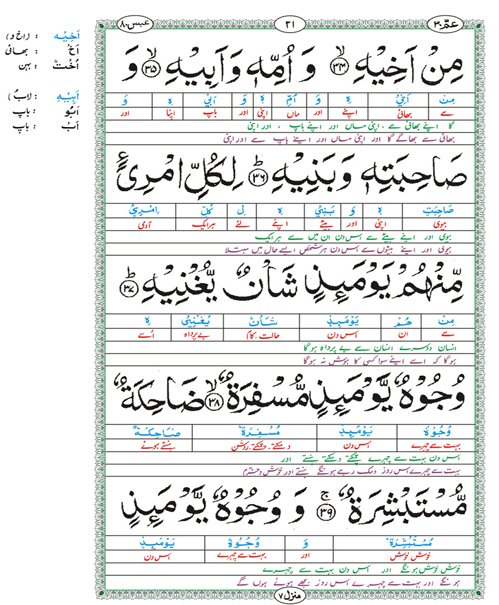 عمّ ۳۰
۲۱
عبس ۸۰
مِنْ اَخِيْهِ ﴿۳۴﴾ وَ اُمِّهٖ وَ اَبِيْهِ ﴿۳۵﴾ وَ
مِنْ اَخِيْ هِ وَ اُمِّ هٖ وَ اَبِيْ هِ وَ
سے بھائی اپنے اور ماں اپنی اور باپ اپنا اور
گا اپنے بھائی سے ، اپنی ماں اور اپنے باپ ، اور اپنی
بھائی سے بھاگے گا اور اپنی ماں اور اپنے باپ سے اور اپنی
صَاحِبَتِهٖ وَ بَنِيْهِ ﴿۳۶﴾ لِكُلِّ امْرِئٍ
صَاحِبَتِ هٖ وَ بَنِيْ هِ لِ كُلِّ امْرِئٍ
بیوی اپنی اور بیٹے اپنے لئے ہر ایک آدمی
بیوی اور اپنے بیٹے سے اس دن ان میں سے ہر ایک
بیوی اور اپنے بیٹوں سے اس دن ہر شخص ایسے حال میں مبتلا
مِّنْهُمْ يَوْمَئِذٍ شَاْنٌ يُّغْنِيْهِ ﴿۳۷﴾
مِنْ هُمْ يَوْمَئِذٍ شَاْنٌ يُغْنِيْ هِ
سے ان اس دن حالت / کام بے پرواہ اُسے
انسان دوسرے انسان سے بے پرواہ ہوگا
ہوگا کہ اسے اپنے سوا کسی کا ہوش نہ ہوگا
وُجُوْهٌ يَّوْمَئِذٍ مُّسْفِرَةٌ ﴿۳۸﴾ ضَاحِكَةٌ
وُجُوْهٌ يَوْمَئِذٍ مُسْفِرَةٌ ضَاحِكَةٌ
بہت سے چہرے اس دن دمکتے، چمکتے، روشن ہنستے ہوئے
اس دن بہت سے چہرے چمکتے دمکتے ہنستے اور
بہت سے چہرے اس روز دمک رہے ہونگے ہنستے اور خوش و خرم
مُّسْتَبْشِرَةٌ ﴿۳۹﴾ وَ وُجُوْهٌ يَّوْمَئِذٍ
مُسْتَبْشِرَةٌ وَ وُجُوْهٌ يَوْمَئِذٍ
خوش خوش اور بہت سے چہرے اس دن
خوش خوش ہونگے اور اس دن بہت سے چہرے
ہونگے اور بہت سے چہرے اس روز بجھے ہوئے ہوں گے
منزل ۷
اَخِيْهِ : (اخ و)
اَخٌ : بھائی
اُخْتٌ : بہن
اَبِيْهِ : (اب)
اَبُوْ : باپ
اَبٌ : باپ